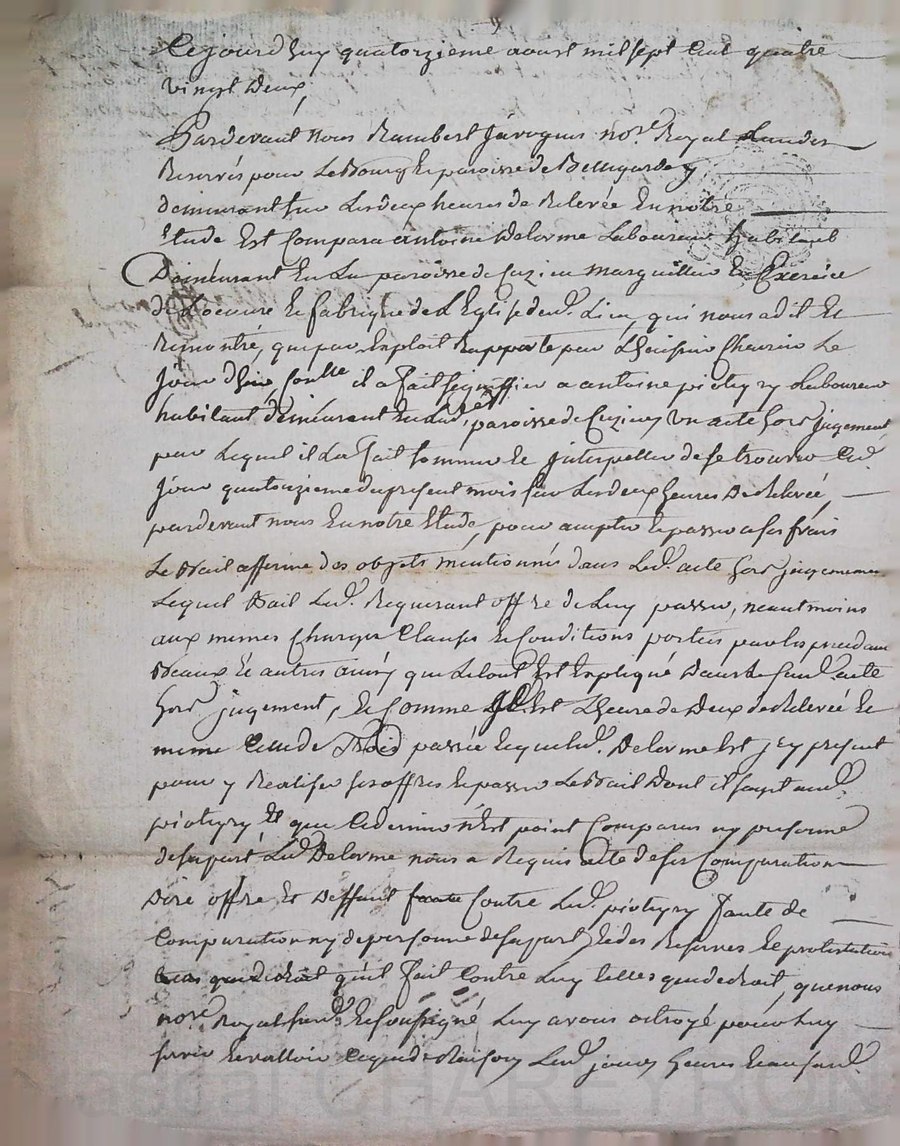 Cejourdhuy quatorzieme aoust mil sept Cent quatre
vingt deux,
Pardevant nous Rambert Javogues no.re Royal
Reservés pour Le Bourg & paroisse de Bellegarde y
demeurant sur Les deux heures de Relevée En notre
Etude Est Comparu antoine Delorme Laboureur habitant
Demeurant En La paroisse de Cuzieu marguillier En Exercice
de L'oeuvre & fabrique de L'Eglise dud. Lieu, qui nous a dit Et
Remontré, que par Exploit Rapporté par L'huissier Le
Jour d'hier il a fait signiffier a antoine pioteyry Laboureur
habitant demeurant En lad. paroisse de Cuzieu un acte hors Jugement
par Lequel il La fait sommer Et Interpeller de se trouver Ced.
Jour quatorzieme du present mois sur Les deux heures de Relevée,
pardevant nous En notre Etude, pour & passer a ses frais
Le Bail afferme des objets mentionnés dans Led. acte hors jugement
Lequel Bail Led. Requerant offre de Luy passer, neautmoins
aux memes Charges Clauses & Conditions portées par les precedans
Beaux & autres ainsy que Letout Est Expliqué Dans Le susd. acte
hors jugement, Et Comme Il Est L'heure de Deux de Relevée Et
meme Celle de Trois passée Et que led. Delorme Est jcy present
pour y Realiser ses offres & passer Le Bail Dont il s'agit aud.
pioteyry Et que Ce dernier n'Est point Comparus ny personne
de sa part, Led. Delorme nous a Requis acte de ses Comparution
Dire offre Et Deffaut Contre Led. pioteyry faute de
Comparution ny de personne de sa part, & des Reserves & protestations
qu'il fait Contre Luy telles que de droit, que nous
no.re Royal susd. & soussigné Luy avons octroyé pour Luy
servir & valloir Ce que de Raison Led. jour, heures & an susd.
CHAREYRON